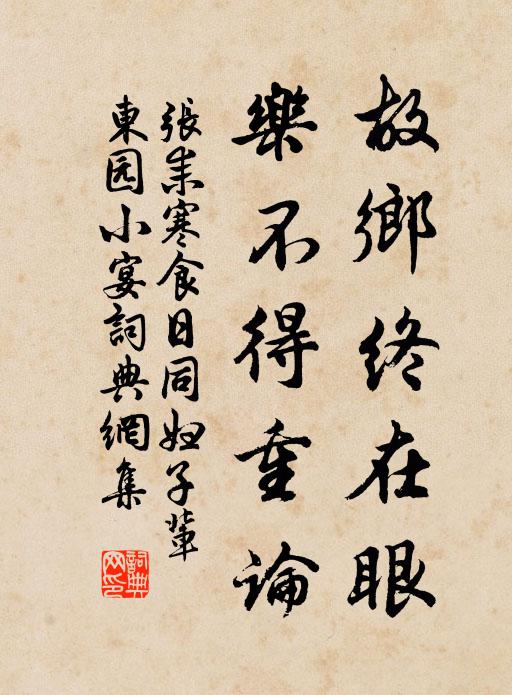 故鄉終在眼
樂不得重論
張耒寒食日同妲子輩
東园小宴詞典網集
詞典网印